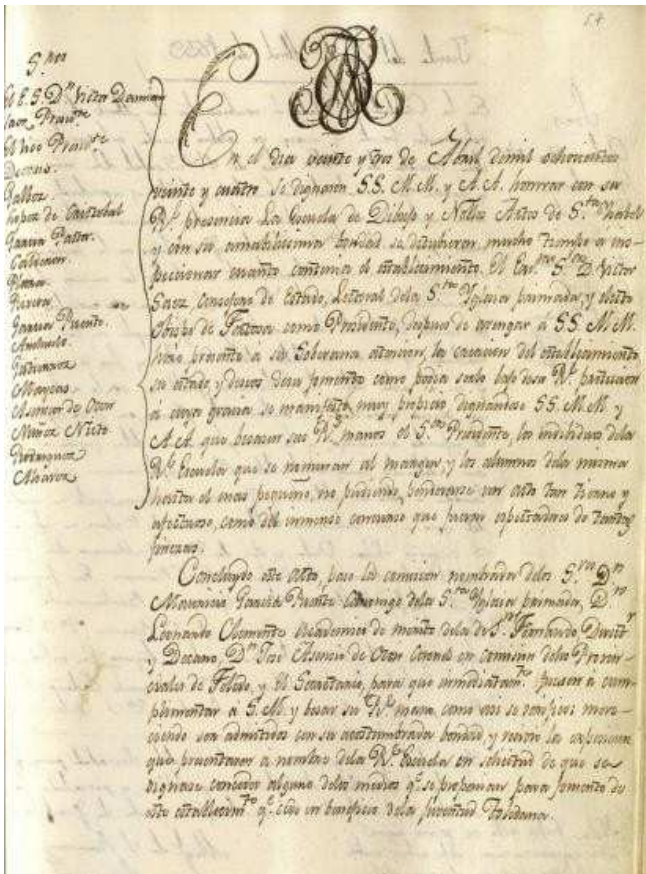 54
S.res
El E. S. D.n Victor Damian
Saez Presid.te
El Vice Presid.te
Decano
Balboa
Lopez de Cristobal
Garcia Pastor
Calderon
Rivera
Garcia Puente
Gutierrez
Mayoas
Asensio de Ocon
Nuñez Nieto
Rodriguez
Alvarez
En el dia veinte y tres de Abril de mil ochocientos
veinte y cuatro se dignaron SS. M.M. y A.A. honrrar con su
R.l presencia la Escuela de Dibujo y Nobles Artes de S.ta Ysabel
y con su amabilisima bondad se detubieron mucho tiempo a ins-
peccionar cuanto contenia el establecimiento. El Ex.mo S.or D. Victor
Saez, Consejero de Estado, Lectoral dela S.ta Yglesia primada, y electo
Obispo de Tortosa como Presidente, despues de arengar á SS. M.M.
hizo presente a su Soberana atencion, la creacion del establecimiento
su estado, y deseos de su fomento como podia serlo bajo de su R.l proteccion
á cuya gracia se manifestó muy propicio, dignandose SS. M.M. y
A.A. que besasen sus R.s manos el S.or Presidente, los individuos dela
R.l Escuela que se nominan al margen, y los alumnos dela misma
hasta el mas pequeño, no pudiendo ponderarse un acto tan tierno y
afectuoso, como del inmenso concurso que fueron espectadores de tantas
finezas.
Concluydo este Acto, paso la comision nombrada delos S.res D.n
Mauricio Garcia Puente Canonigo dela S.ta Yglesia primada, D.n
Leonardo Clemente Academico de merito dela de S.n Fernando Direct.r
y Decano, D.n José Asensio de Ocon Coronel en comision delos Provin-
ciales de Toledo, y el Secretario, para que inmediatam.te fuesen a cum-
plimentar á S.M. y besar su R.l mano, como asi se verificó: mere-
ciendo ser admitidos con su acostumbrada bondad y recivio la exposicion
que presentaron a nombre dela R.l Escuela en solicitud de que se
dignase conceder alguno delos medios q.e se proponian para fomento de
este establecim.to q.e cede en beneficio dela juventud Toledana.